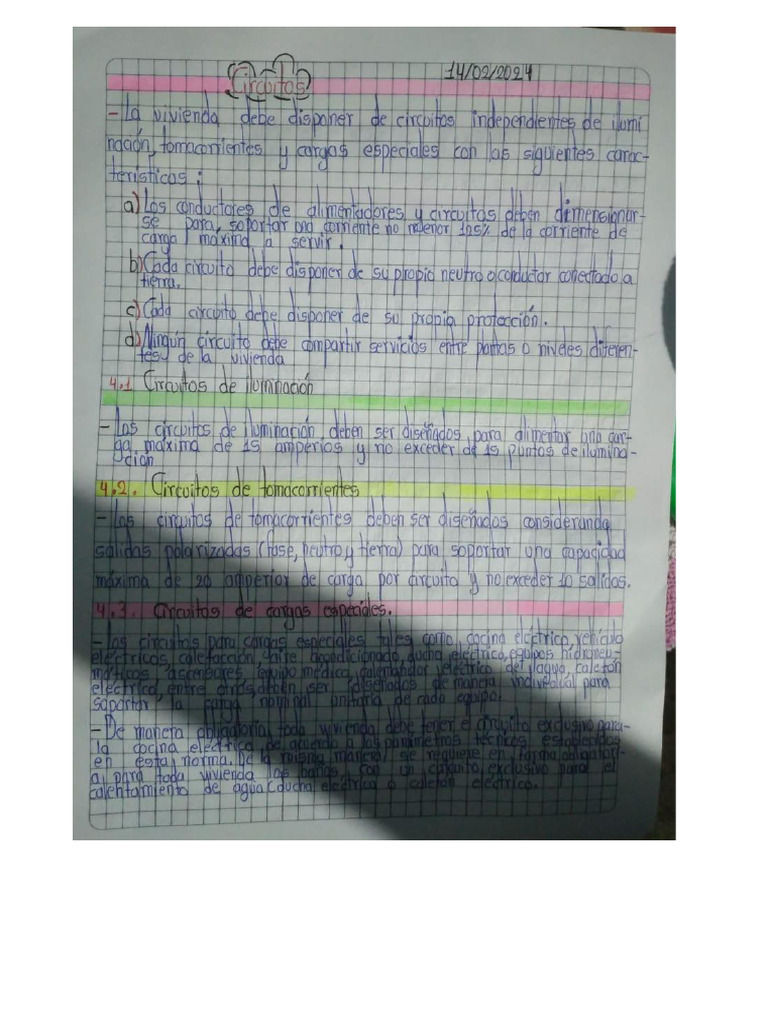 Circuitos
14/02/2024
- La vivienda debe disponer de circuitos independientes de ilumi
nación, tomacorrientes y cargas especiales con las siguientes carac-
terísticas:
a) Los conductores de alimentadores y circuitos deben dimensionar-
se para, soportar una corriente no menor 125% de la corriente de
carga máxima a servir.
b) Cada circuito debe disponer de su propio neutro o conductor conectado a
tierra.
c) Cada circuito debe disponer de su propia protección.
d) Ningún circuito debe compartir servicios entre plantas o niveles diferen-
tes, de la vivienda
4.1 Circuitos de iluminación
- Los circuitos de iluminación, deben ser diseñados, para alimentar una car-
ga, máxima de 15 amperios y no exceder de 15 puntos de ilumina-
ción
4.2. Circuitos de tomacorrientes
- Los circuitos de tomacorrientes deben ser diseñados considerando
salidas polarizadas (fase, neutro y tierra) para soportar una capacidad
máxima de 20 amperior de carga, por circuito y no exceder 10 salidas.
4.3. Circuitos de cargas especiales.
- Los circuitos para cargas especiales tales como, cocina eléctrica, vehículo
eléctricos, calefacción, aire acondicionado, ducha eléctrica, equipos hidroneu-
máticos, ascensores, equipo médico, calentador eléctrico del agua, calefón
eléctrico, entre otros, deben ser diseñados de manera individual para
soportar, la carga nominal unitaria de cada equipo.
- De manera obligatoria, toda vivienda debe tener el circuito exclusivo para
la cocina eléctrica, de acuerdo a los parámetros técnicos establecidos
en esta norma. De la misma manera, se requiere en forma obligator-
a, para toda vivienda los baños, con un circuito exclusivo para el
calentamiento de agua (ducha eléctrica o calefón eléctrico.